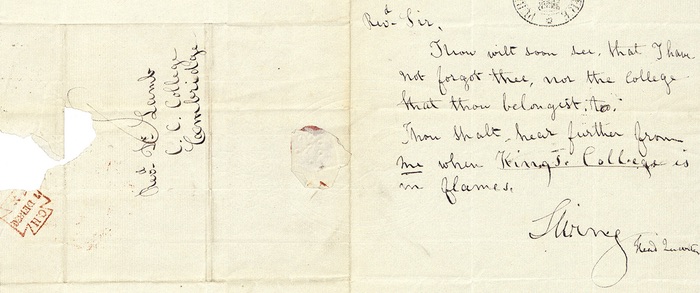 Revd Dr Lamb
C. C. College
Cambridge
Revd Sir,
Thou wilt soon see, that I have
not forgot thee, nor the College
that thou belongist, to.
Thou shalt hear further from
me when King's College is
in flames.
Swing
Head Quarters